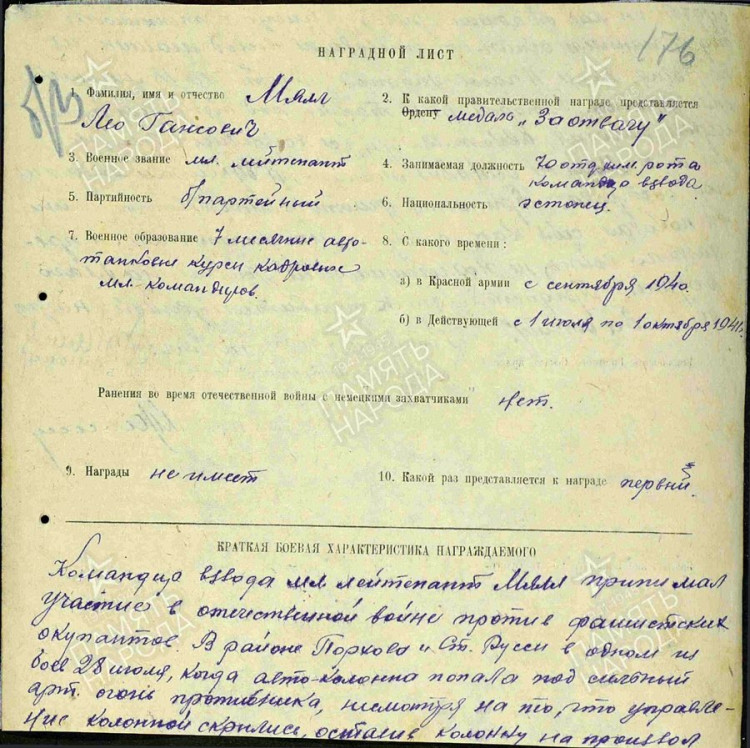 176
НАГРАДНОЙ ЛИСТ
б/з
1. Фамилия, имя и отчество Мялл
Лео Гансович
2. К какой правительственной награде представляется
Ордену медаль „За отвагу"
3. Военное звание мл. лейтенант
4. Занимаемая должность 70 отд. хим. рота
командир взвода
5. Партийность б/партейный
6. Национальность эстонец.
7. Военное образование 7 месячние авто-
танковие курси кадровие
мл. командиров.
8. С какого времени:
а) в Красной армии с сентября 1940.
б) в Действующей с 1 июля по 1 октября 1941г.
Ранения во время отечественной войны с немецкими захватчиками нет.
9. Награды не имеет
10. Какой раз представляется к награде первий
КРАТКАЯ БОЕВАЯ ХАРАКТЕРИСТИКА НАГРАЖДАЕМОГО
Командир взвода мл лейтенант Мялл принимал
участие в отечественной войне против фашистских
окупантов. В районе Порхова и Ст. Русси в одном из
боев 28 июля, когда авто-колонна попала под сильный
арт. огонь противника, несмотря на то, что управле-
ние колонной скрились, оставив колонну на произвол
ПАМЯТЬ НАРОДА
ПАМЯТЬ НАРОДА
ПАМЯТЬ НАРОДА
ПАМЯТЬ НАРОДА
ПАМЯТЬ НАРОДА